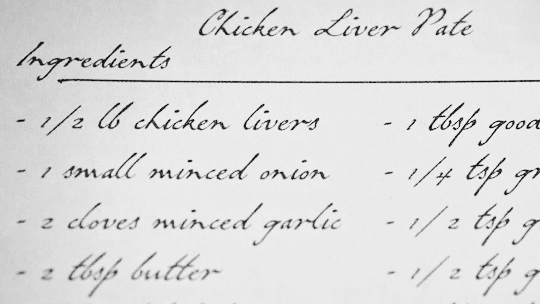 Chicken Liver Pate
Ingredients
- 1/2 lb chicken livers
- 1 small minced onion
- 2 cloves minced garlic
- 2 tbsp butter
- 1 tbsp good
- 1/4 tsp gr
- 1/2 tsp g
- 1/2 tsp g